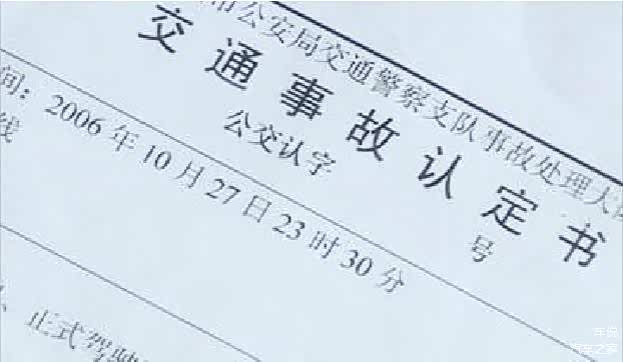 市公安局交通警察支队事故处理大队
交通事故认定书
公交认字 号
间：2006年10月27日23时30分
线
、正式驾驶
车说
汽车之家